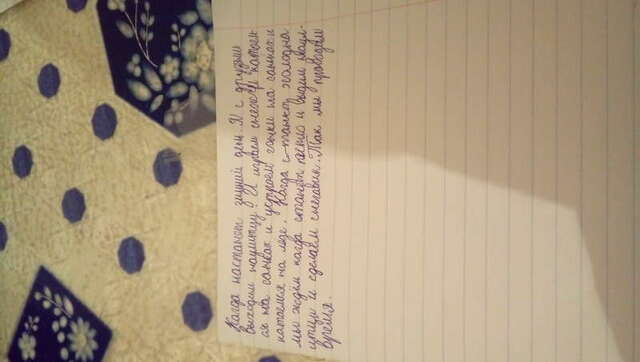 Когда настанет зимний день. Я с друзьми
выходим наулитцу. И играем снежки катаем
ся на санках и устроем гонки на санках и
катаемся на леде. Когда станет холодна
мы ждём когда станет тепло и выдим наул-
итци и сделаем снеговик. Так мы проводим
время.